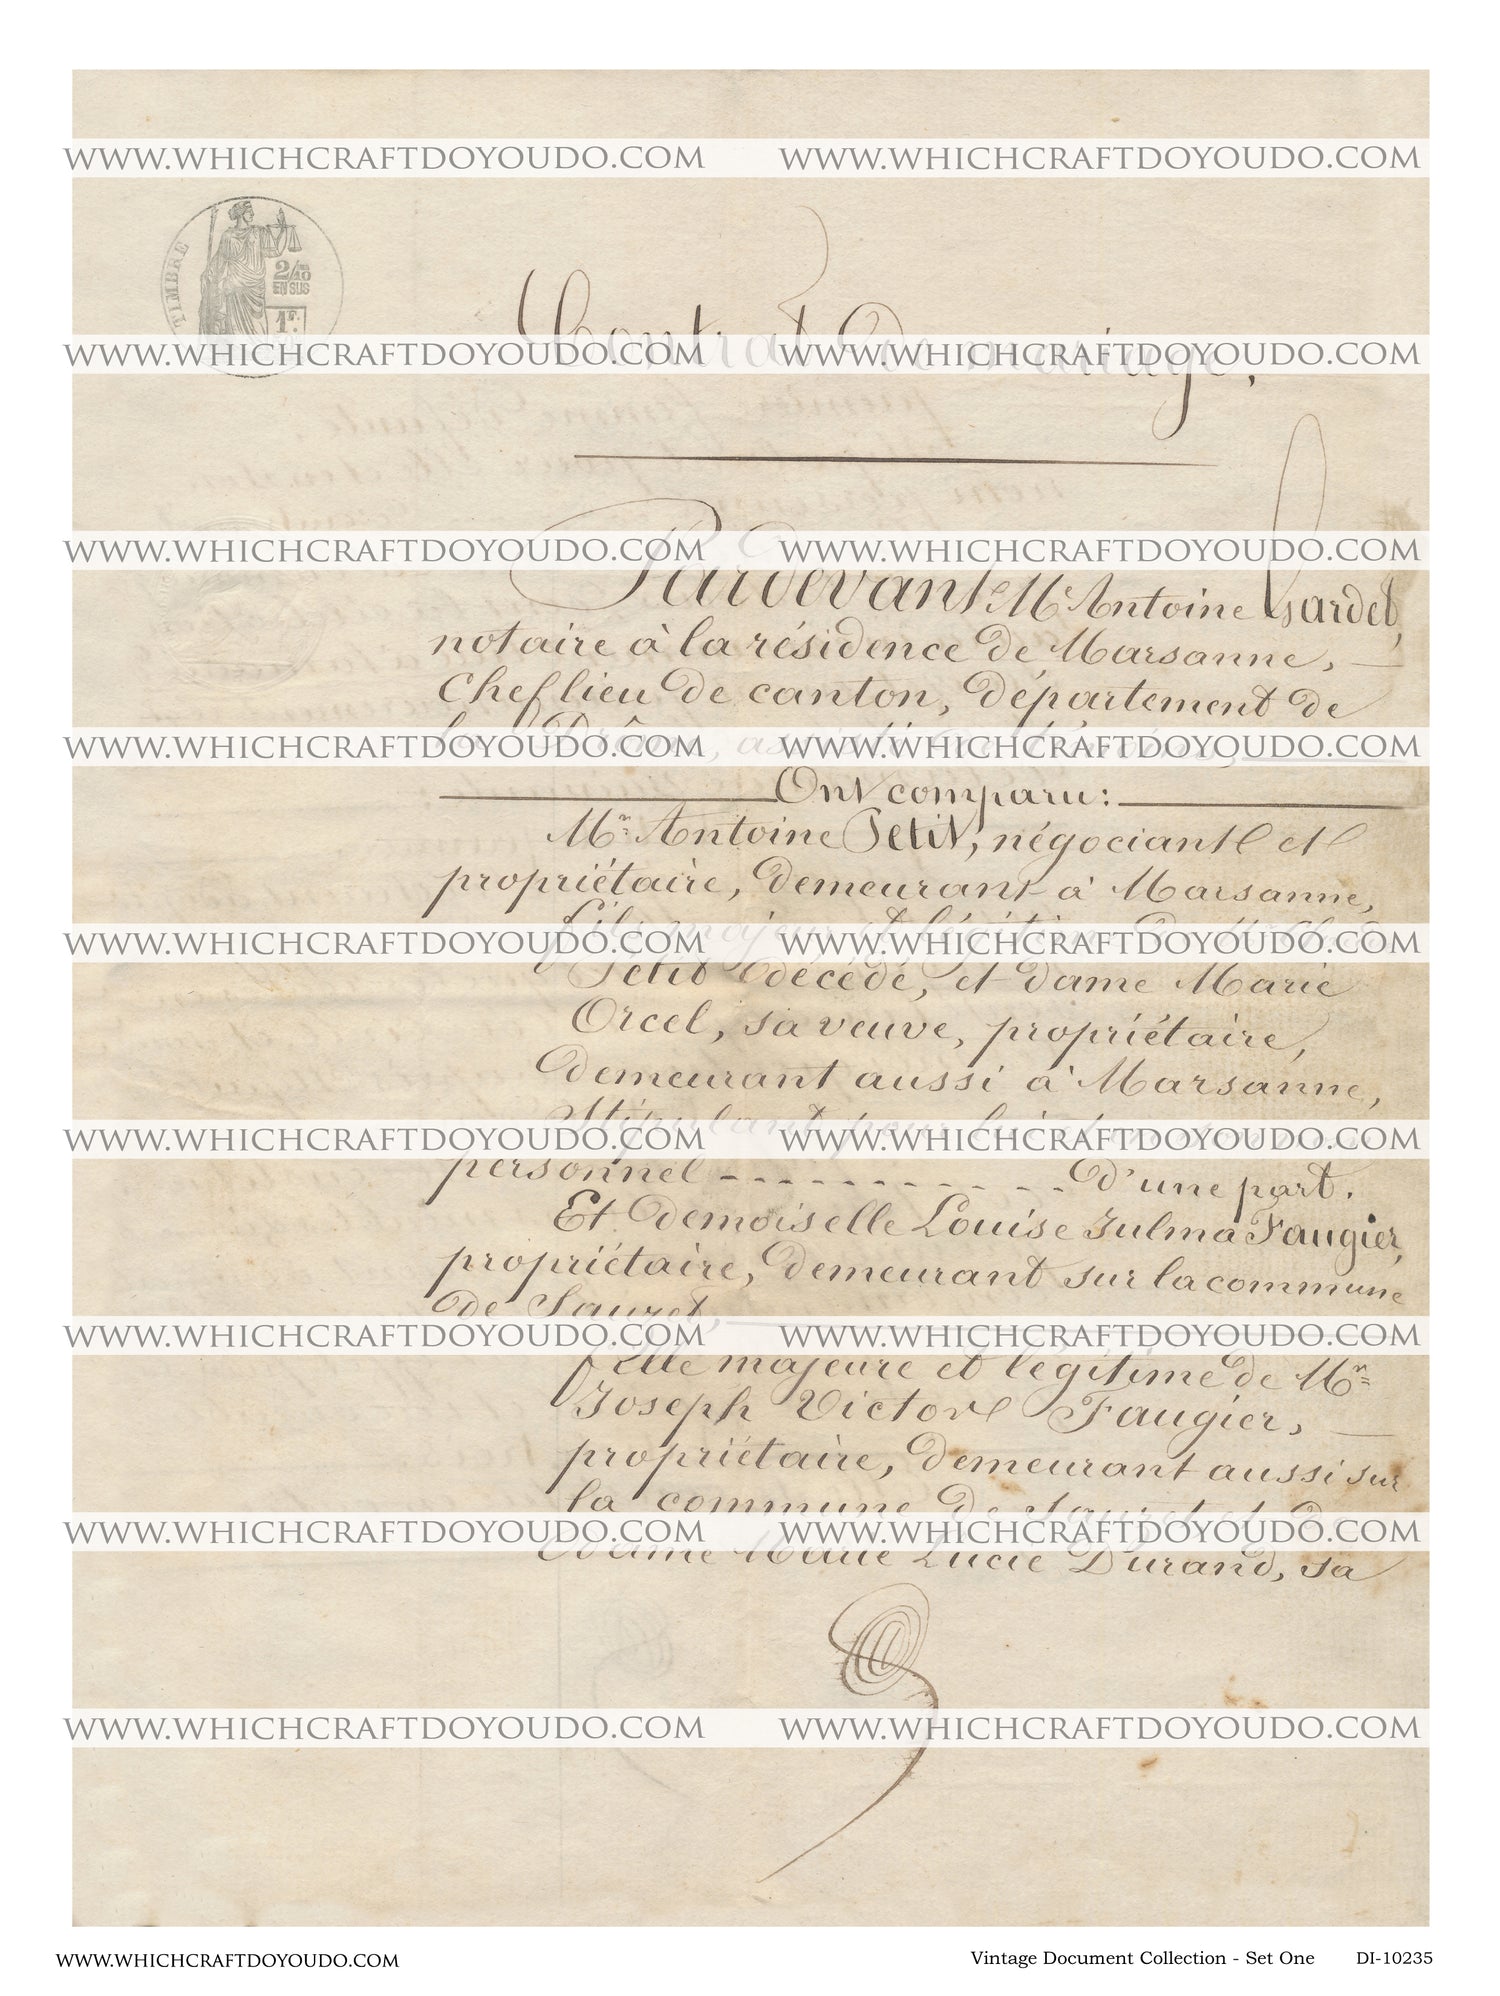 WWW.WHICHCRAFTDOYOUDO.COM WWW.WHICHCRAFTDOYOUDO.COM
TIMBRE
2/10 EN SUS
1F.
Contrat de mariage.
WWW.WHICHCRAFTDOYOUDO.COM WWW.WHICHCRAFTDOYOUDO.COM
WWW.WHICHCRAFTDOYOUDO.COM WWW.WHICHCRAFTDOYOUDO.COM
Pardevant Me Antoine Gardet,
notaire à la résidence de Marsanne,
Chef lieu de canton, département de
la Drôme,
WWW.WHICHCRAFTDOYOUDO.COM WWW.WHICHCRAFTDOYOUDO.COM
Ont comparu:
Mr Antoine Petit, négociant et
propriétaire, demeurant à Marsanne,
fils majeur et légitime de
WWW.WHICHCRAFTDOYOUDO.COM WWW.WHICHCRAFTDOYOUDO.COM
Petit décédé, et dame Marie
Orcel, sa veuve, propriétaire,
demeurant aussi à Marsanne,
Stipulant pour lui et en son
WWW.WHICHCRAFTDOYOUDO.COM WWW.WHICHCRAFTDOYOUDO.COM
personnel - - - - - - - - - - - d'une part.
Et demoiselle Louise Zulma Faugier,
propriétaire, demeurant sur la commune
de Sauzet,
WWW.WHICHCRAFTDOYOUDO.COM WWW.WHICHCRAFTDOYOUDO.COM
fille majeure et légitime de Mr
Joseph Victor Faugier,
propriétaire, demeurant aussi sur
la commune de Sauzet et de
WWW.WHICHCRAFTDOYOUDO.COM WWW.WHICHCRAFTDOYOUDO.COM
dame Marie Lucie Durand, sa
WWW.WHICHCRAFTDOYOUDO.COM WWW.WHICHCRAFTDOYOUDO.COM
WWW.WHICHCRAFTDOYOUDO.COM Vintage Document Collection - Set One DI-10235